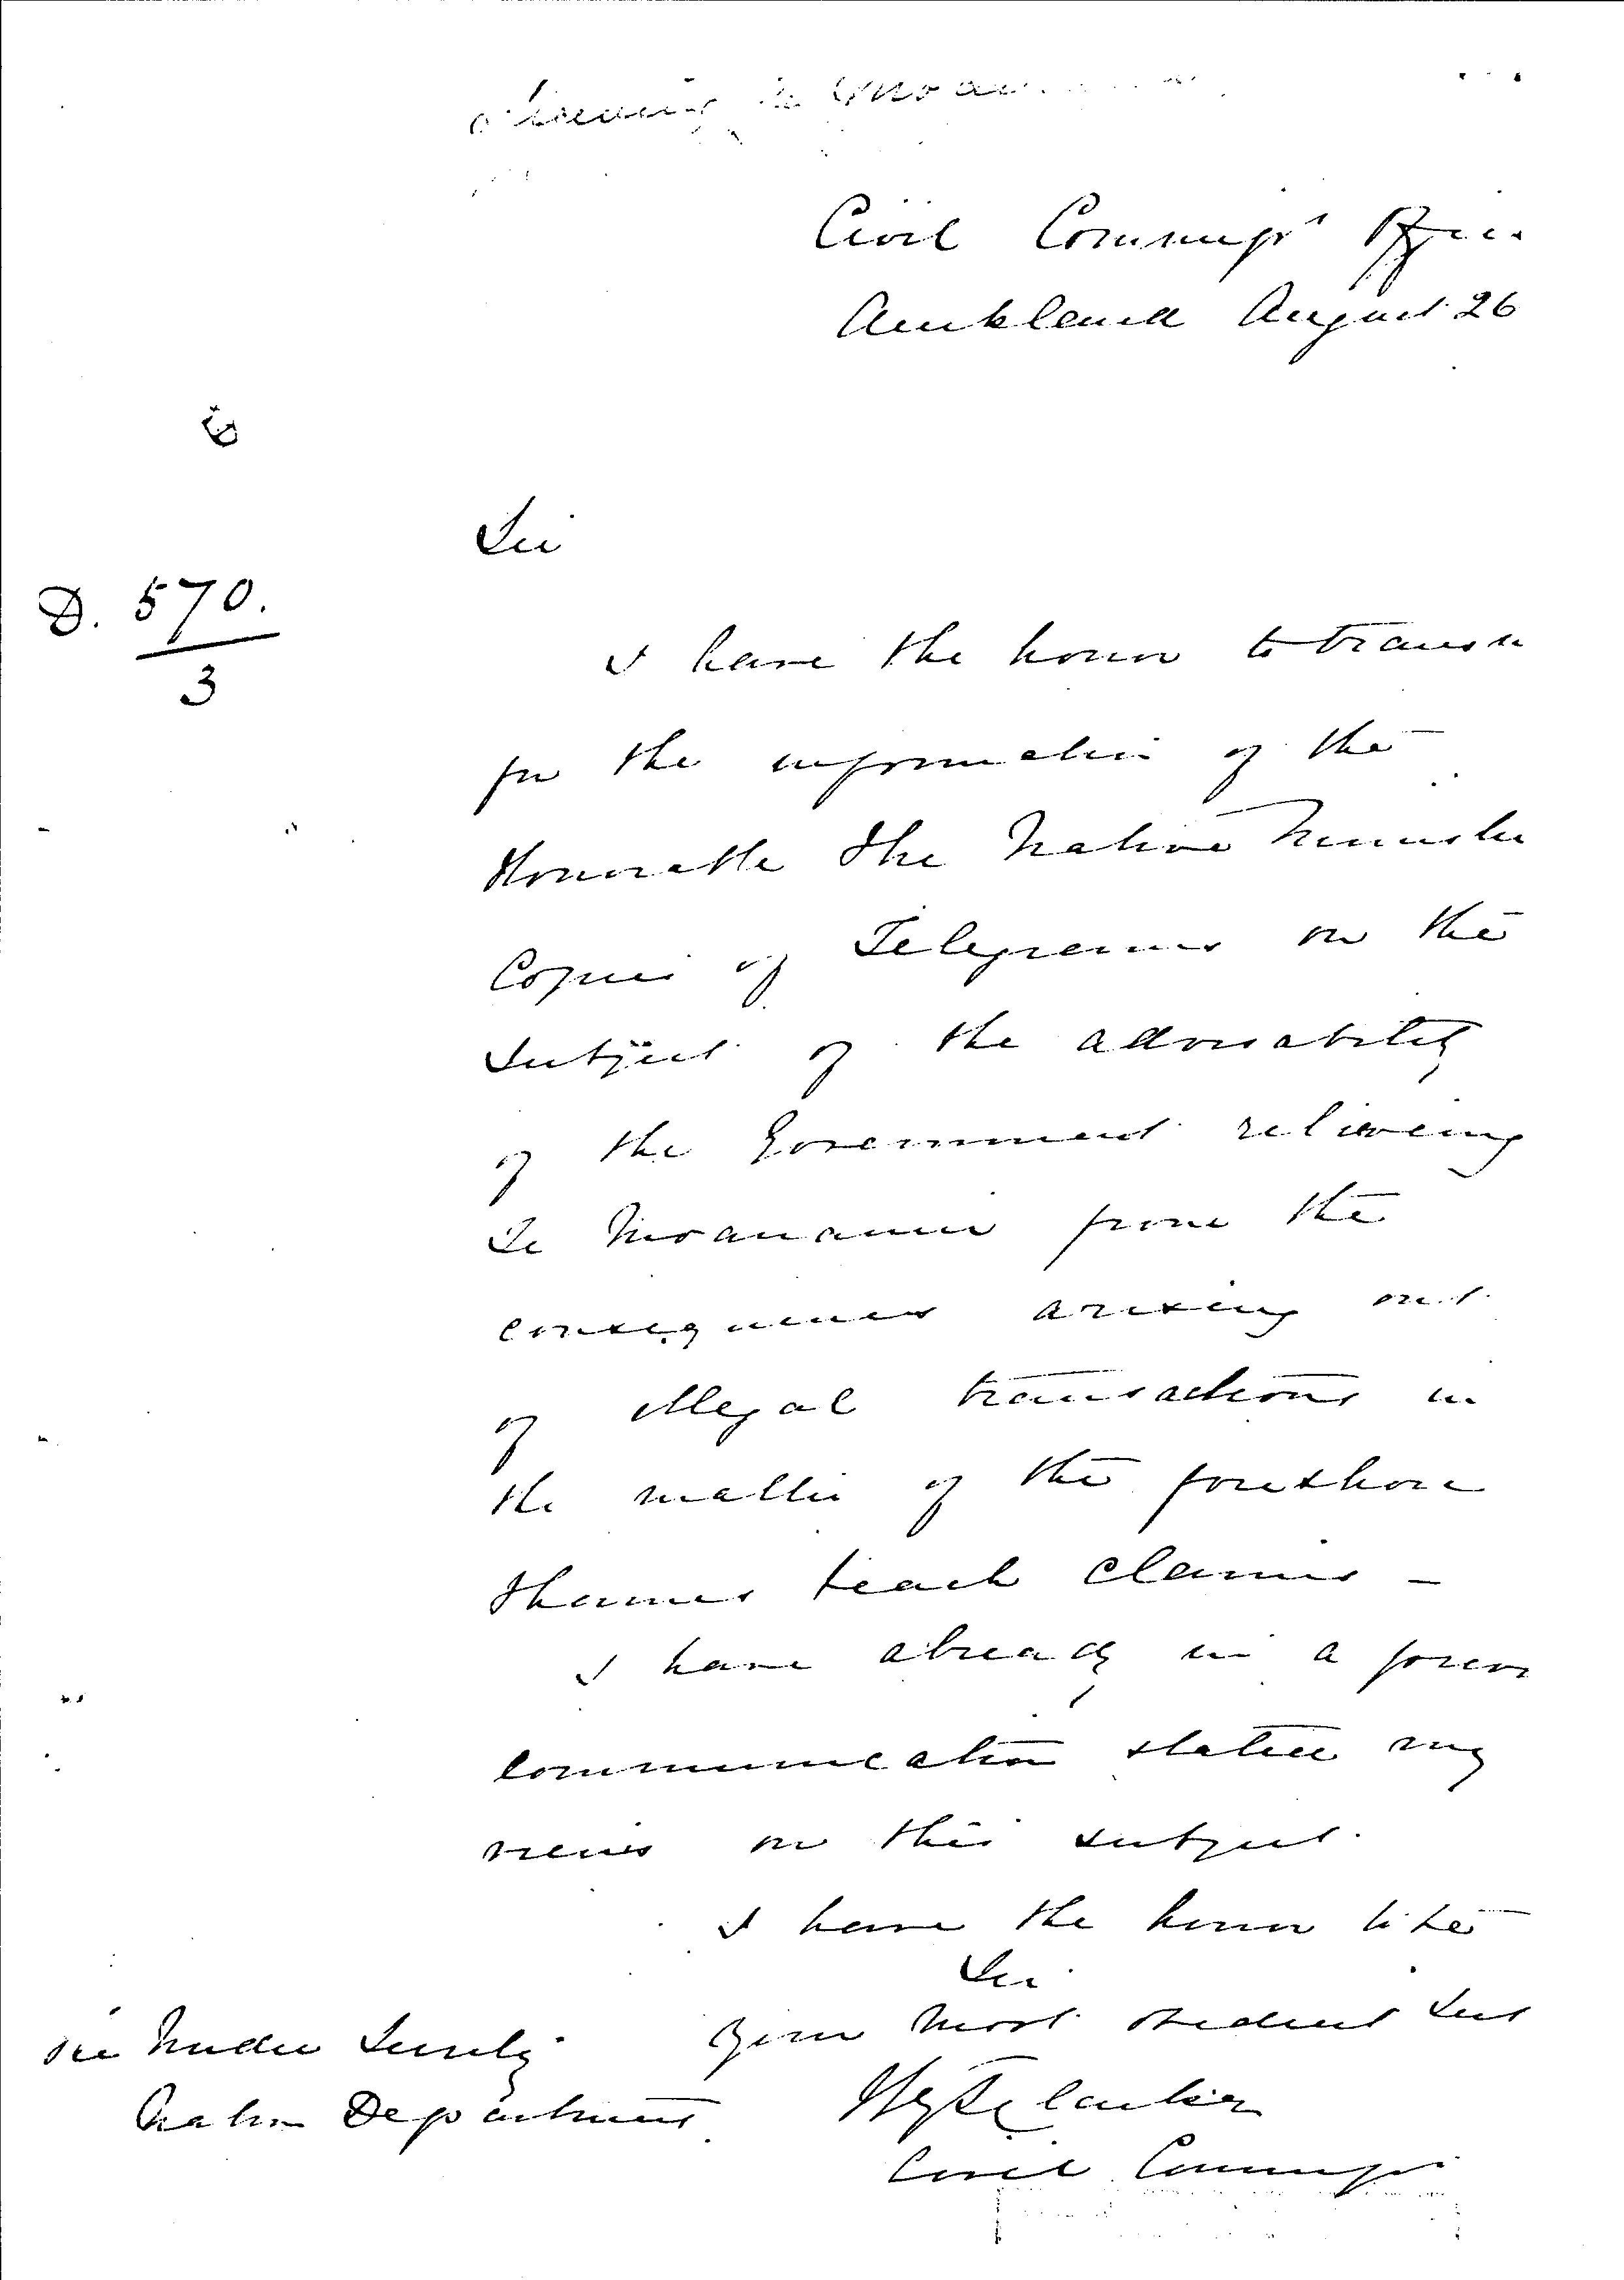 relieving Te Moana
Civil Commissr's Office
Auckland August 26
Sir
D. 570.
3
I have the honor to transm
for the information of the
Honorable the Native Minister
Copies of Telegrams on the
subject of the advisability
of the Government relieving
Te Moananui from the
consequences arising out
of illegal transactions in
the matter of the foreshore
Thames beach claims –
I have already in a former
communication stated my
views on this subject.
I have the honor to be
Sir
Your most obedient Servt
The Under Secrety
Native Department
HyTClarke
Civil Commissr